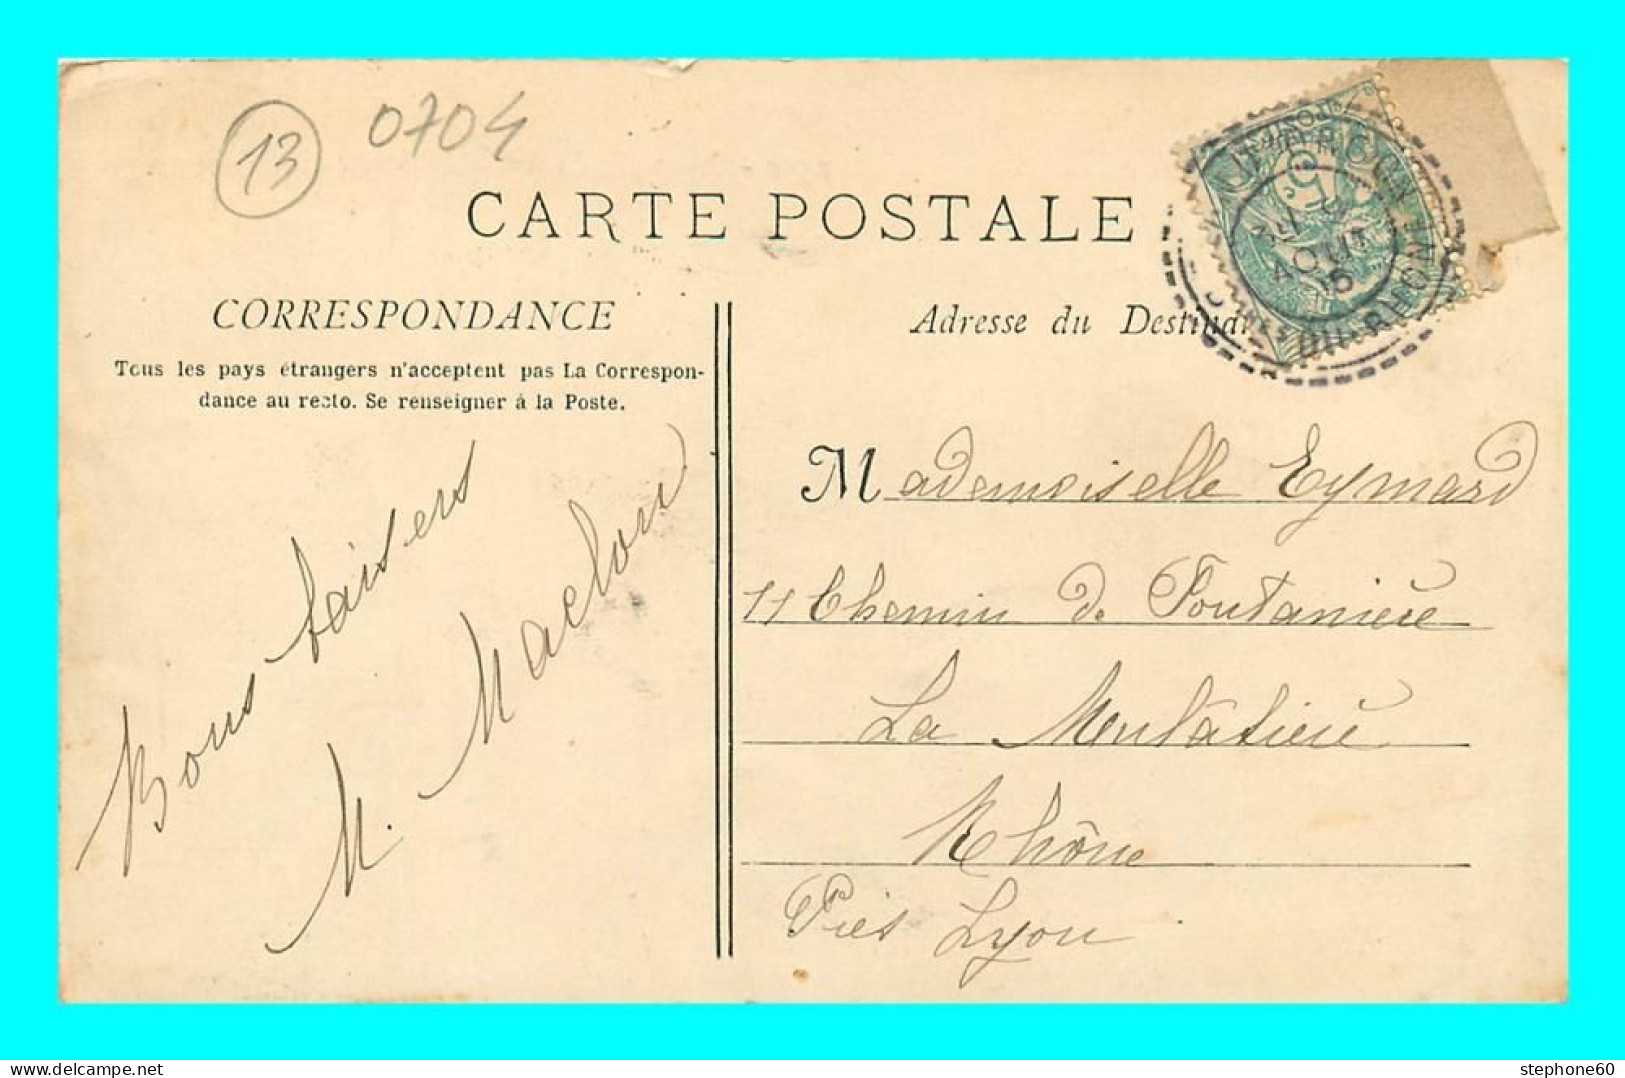 13
0704
CARTE POSTALE
CORRESPONDANCE
Tous les pays étrangers n'acceptent pas La Correspon-
dance au recto. Se renseigner à la Poste.
Bons baisers
M. Machon
Adresse du
AOUT
DU-RHONE
Mademoiselle Eymard
11 Chemin de Fontanière
La Mulatière
Rhône
Près Lyon
stephone60